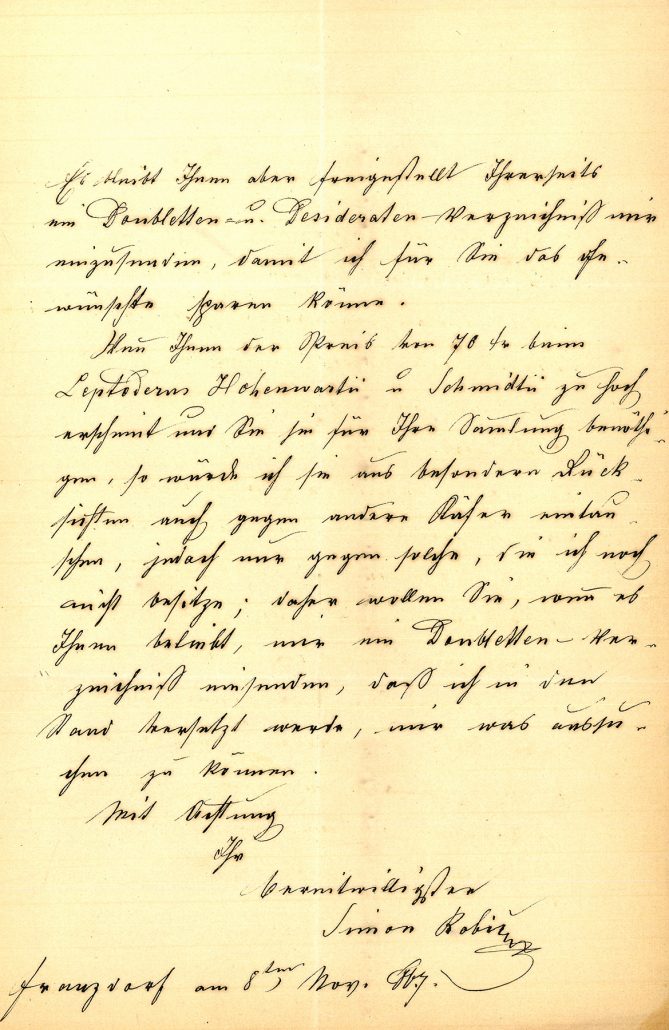 Es bleibt Ihnen aber freigestellt Ihrerseits
ein Doubletten- u. Desideraten-Verzeichniß mir
einzusenden, damit ich für Sie das Ge-
wünschte sparen könne.
Wenn Ihnen der Preis von 70 fr beim
Leptoderus Hohenwartii u Schmidtii zu hoch
erscheint und Sie sie für Ihre Sammlung benöthi-
gen, so würde ich sie aus besondern Rück-
sichten auch gegen andere Käfer eintau-
schen, jedoch nur gegen solche, die ich noch
nicht besitze; daher wollen Sie, wenn es
Ihnen beliebt, mir ein Doubletten-Ver-
zeichniß einsenden, daß ich in den
Stand versetzt werde, mir was aussu-
chen zu können.
Mit Achtung
Ihr
bereitwilligster
Simon Robič
Franzdorf am 8ten Nov. 867.